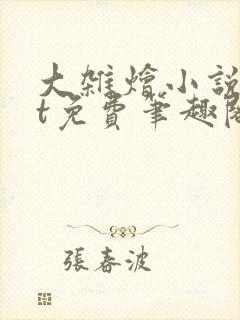 大雜燴小說
t免費筆趣閣
張春波